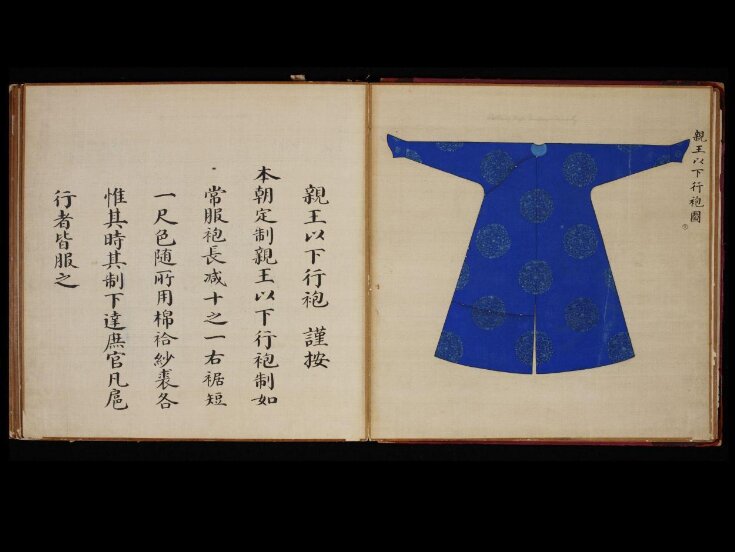 親王以下行袍圖
親王以下行袍 謹按
本朝定制親王以下行袍制如
常服袍長减十之一右裾短
一尺色随所用棉袷紗裘各
惟其時其制下達庶官凡扈
行者皆服之